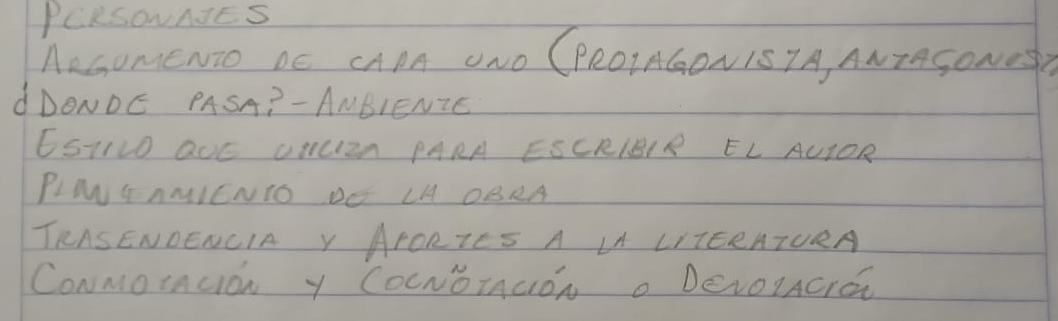 PERSONAJES
ARGUMENTO DE CADA UNO (PROTAGONISTA, ANTAGONIST
¿DONDE PASA? - AMBIENTE
ESTILO QUE UTILIZA PARA ESCRIBIR EL AUTOR
PLANTAMIENTO DE LA OBRA
TRASENDENCIA Y APORTES A LA LITERATURA
CONMOTACIÓN Y COCÑOTACIÓN O DENOTACIÓN